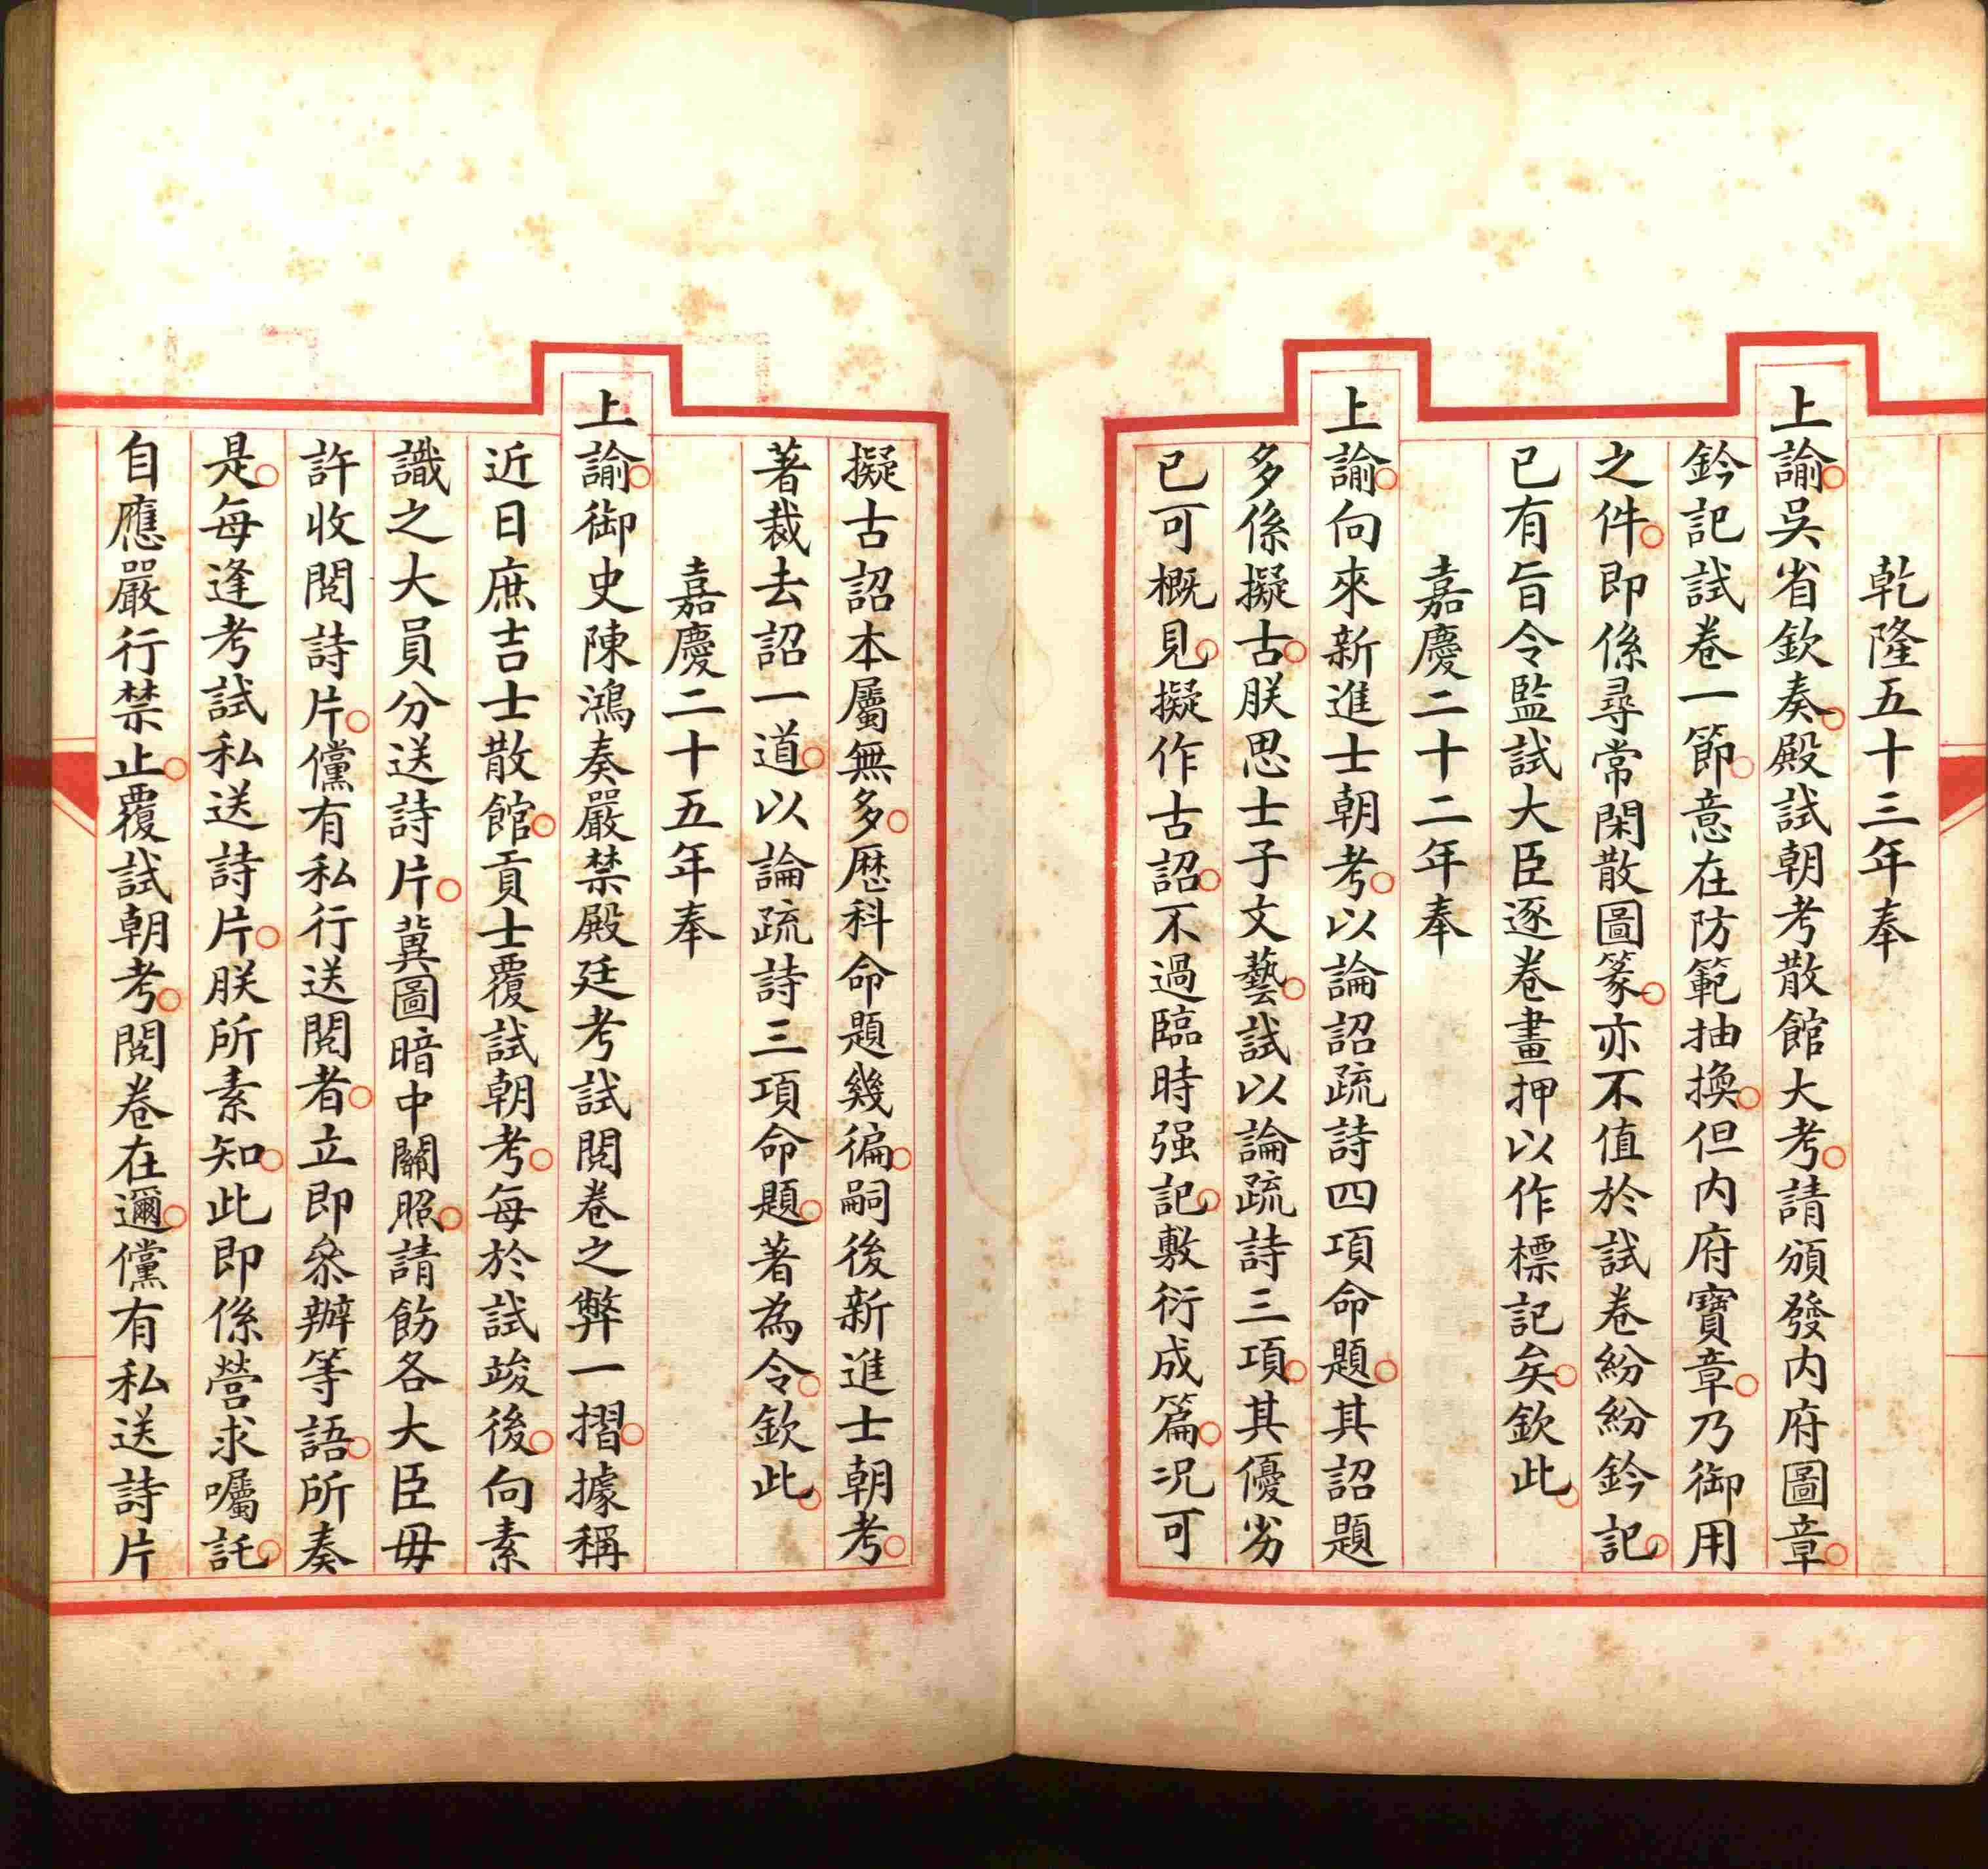 乾隆五十三年奉
上諭吳省欽奏殿試朝考散館大考請頒發內府圖章
鈐記試卷一節意在防範抽換但內府寶章乃御用
之件即係尋常閑散圖篆亦不值於試卷紛紛鈐記
已有旨令監試大臣逐卷畫押以作標記矣欽此
嘉慶二十二年奉
上諭向來新進士朝考以論詔疏詩四項命題其詔題
多係擬古朕思士子文藝試以論疏詩三項其優劣
已可概見擬作古詔不過臨時强記敷衍成篇况可
擬古詔本屬無多歷科命題幾徧嗣後新進士朝考
著裁去詔一道以論疏詩三項命題著為令欽此
嘉慶二十五年奉
上諭御史陳鴻奏嚴禁殿廷考試閱卷之弊一摺據稱
近日庶吉士散館貢士覆試朝考每於試竣後向素
識之大員分送詩片冀圖暗中關照請飭各大臣毋
許收閱詩片儻有私行送閱者立即叅辦等語所奏
是每逢考試私送詩片朕所素知此即係營求囑託
自應嚴行禁止覆試朝考閱卷在邇儻有私送詩片